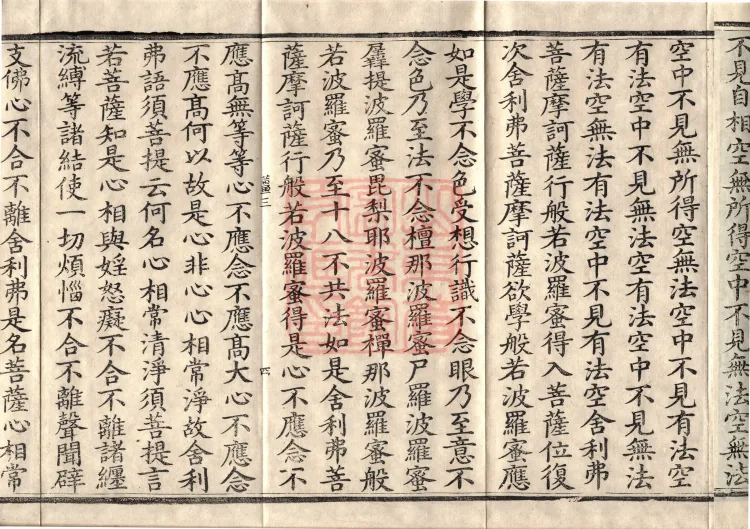 不見自相空無所得空中不見無法空無法
空中不見無所得空無法空中不見有法空
有法空中不見無法空有法空中不見無法
有法空無法有法空中不見有法空舍利弗
菩薩摩訶薩行般若波羅蜜得入菩薩位復
次舍利弗菩薩摩訶薩欲學般若波羅蜜應
如是學不念色受想行識不念眼乃至意不
念色乃至法不念檀那波羅蜜尸羅波羅蜜
羼提波羅蜜毘梨耶波羅蜜禪那波羅蜜般
若波羅蜜乃至十八不共法如是舍利弗菩
薩摩訶薩行般若波羅蜜得是心不應念不
應髙無等等心不應念不應髙大心不應念
不應髙何以故是心非心心相常淨故舍利
弗語須菩提云何名心相常清淨須菩提言
若菩薩知是心相與婬怒癡不合不離諸纏
流縛等諸結使一切煩惱不合不離聲聞辟
支佛心不合不離舍利弗是名菩薩心相常